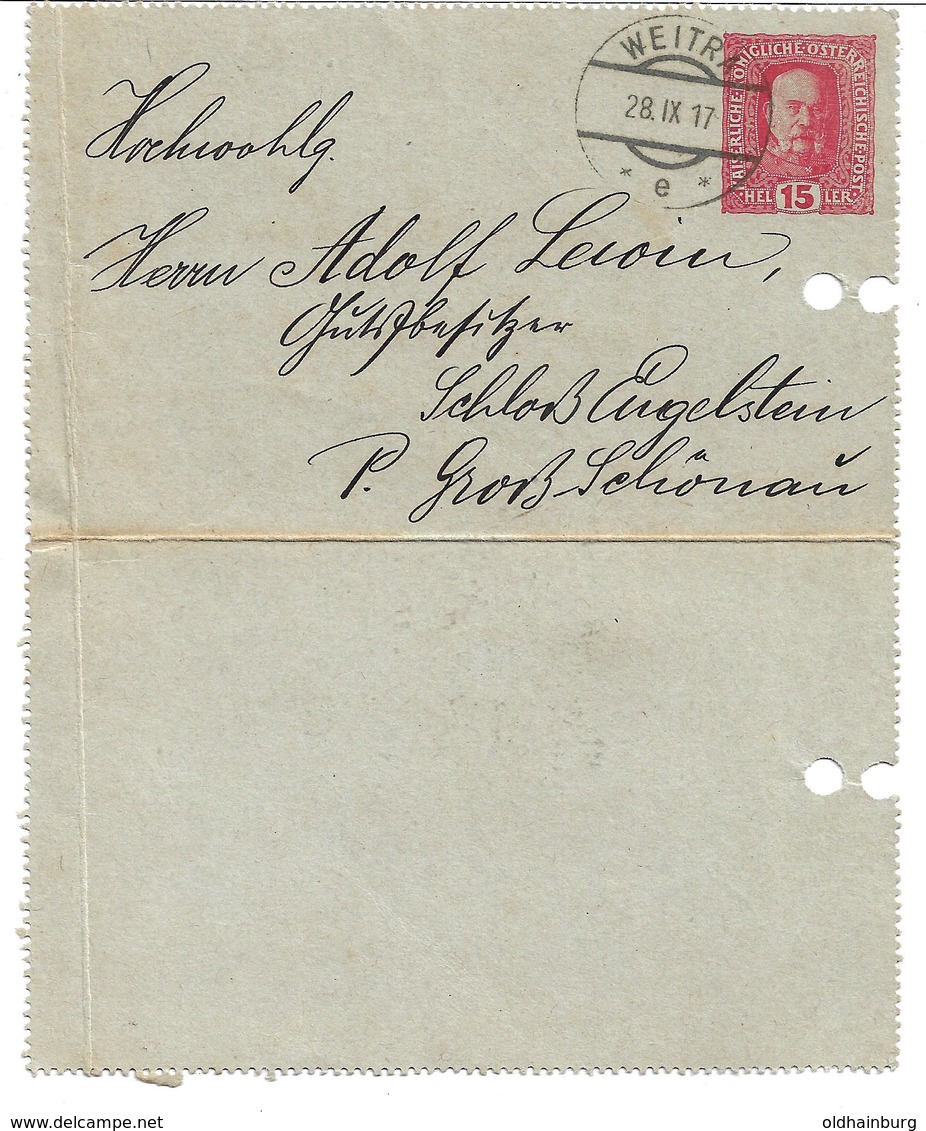 WEITRA
28. IX 17
* e *
KAISERLICHE·KÖNIGLICHE·ÖSTERREICHISCHE·POST
·HEL 15 LER·
Hochwohlg.
Herrn Adolf Lewin,
Gutsbesitzer
Schloß Engelstein
P. Groß Schönau
delcampe.net
oldhainburg